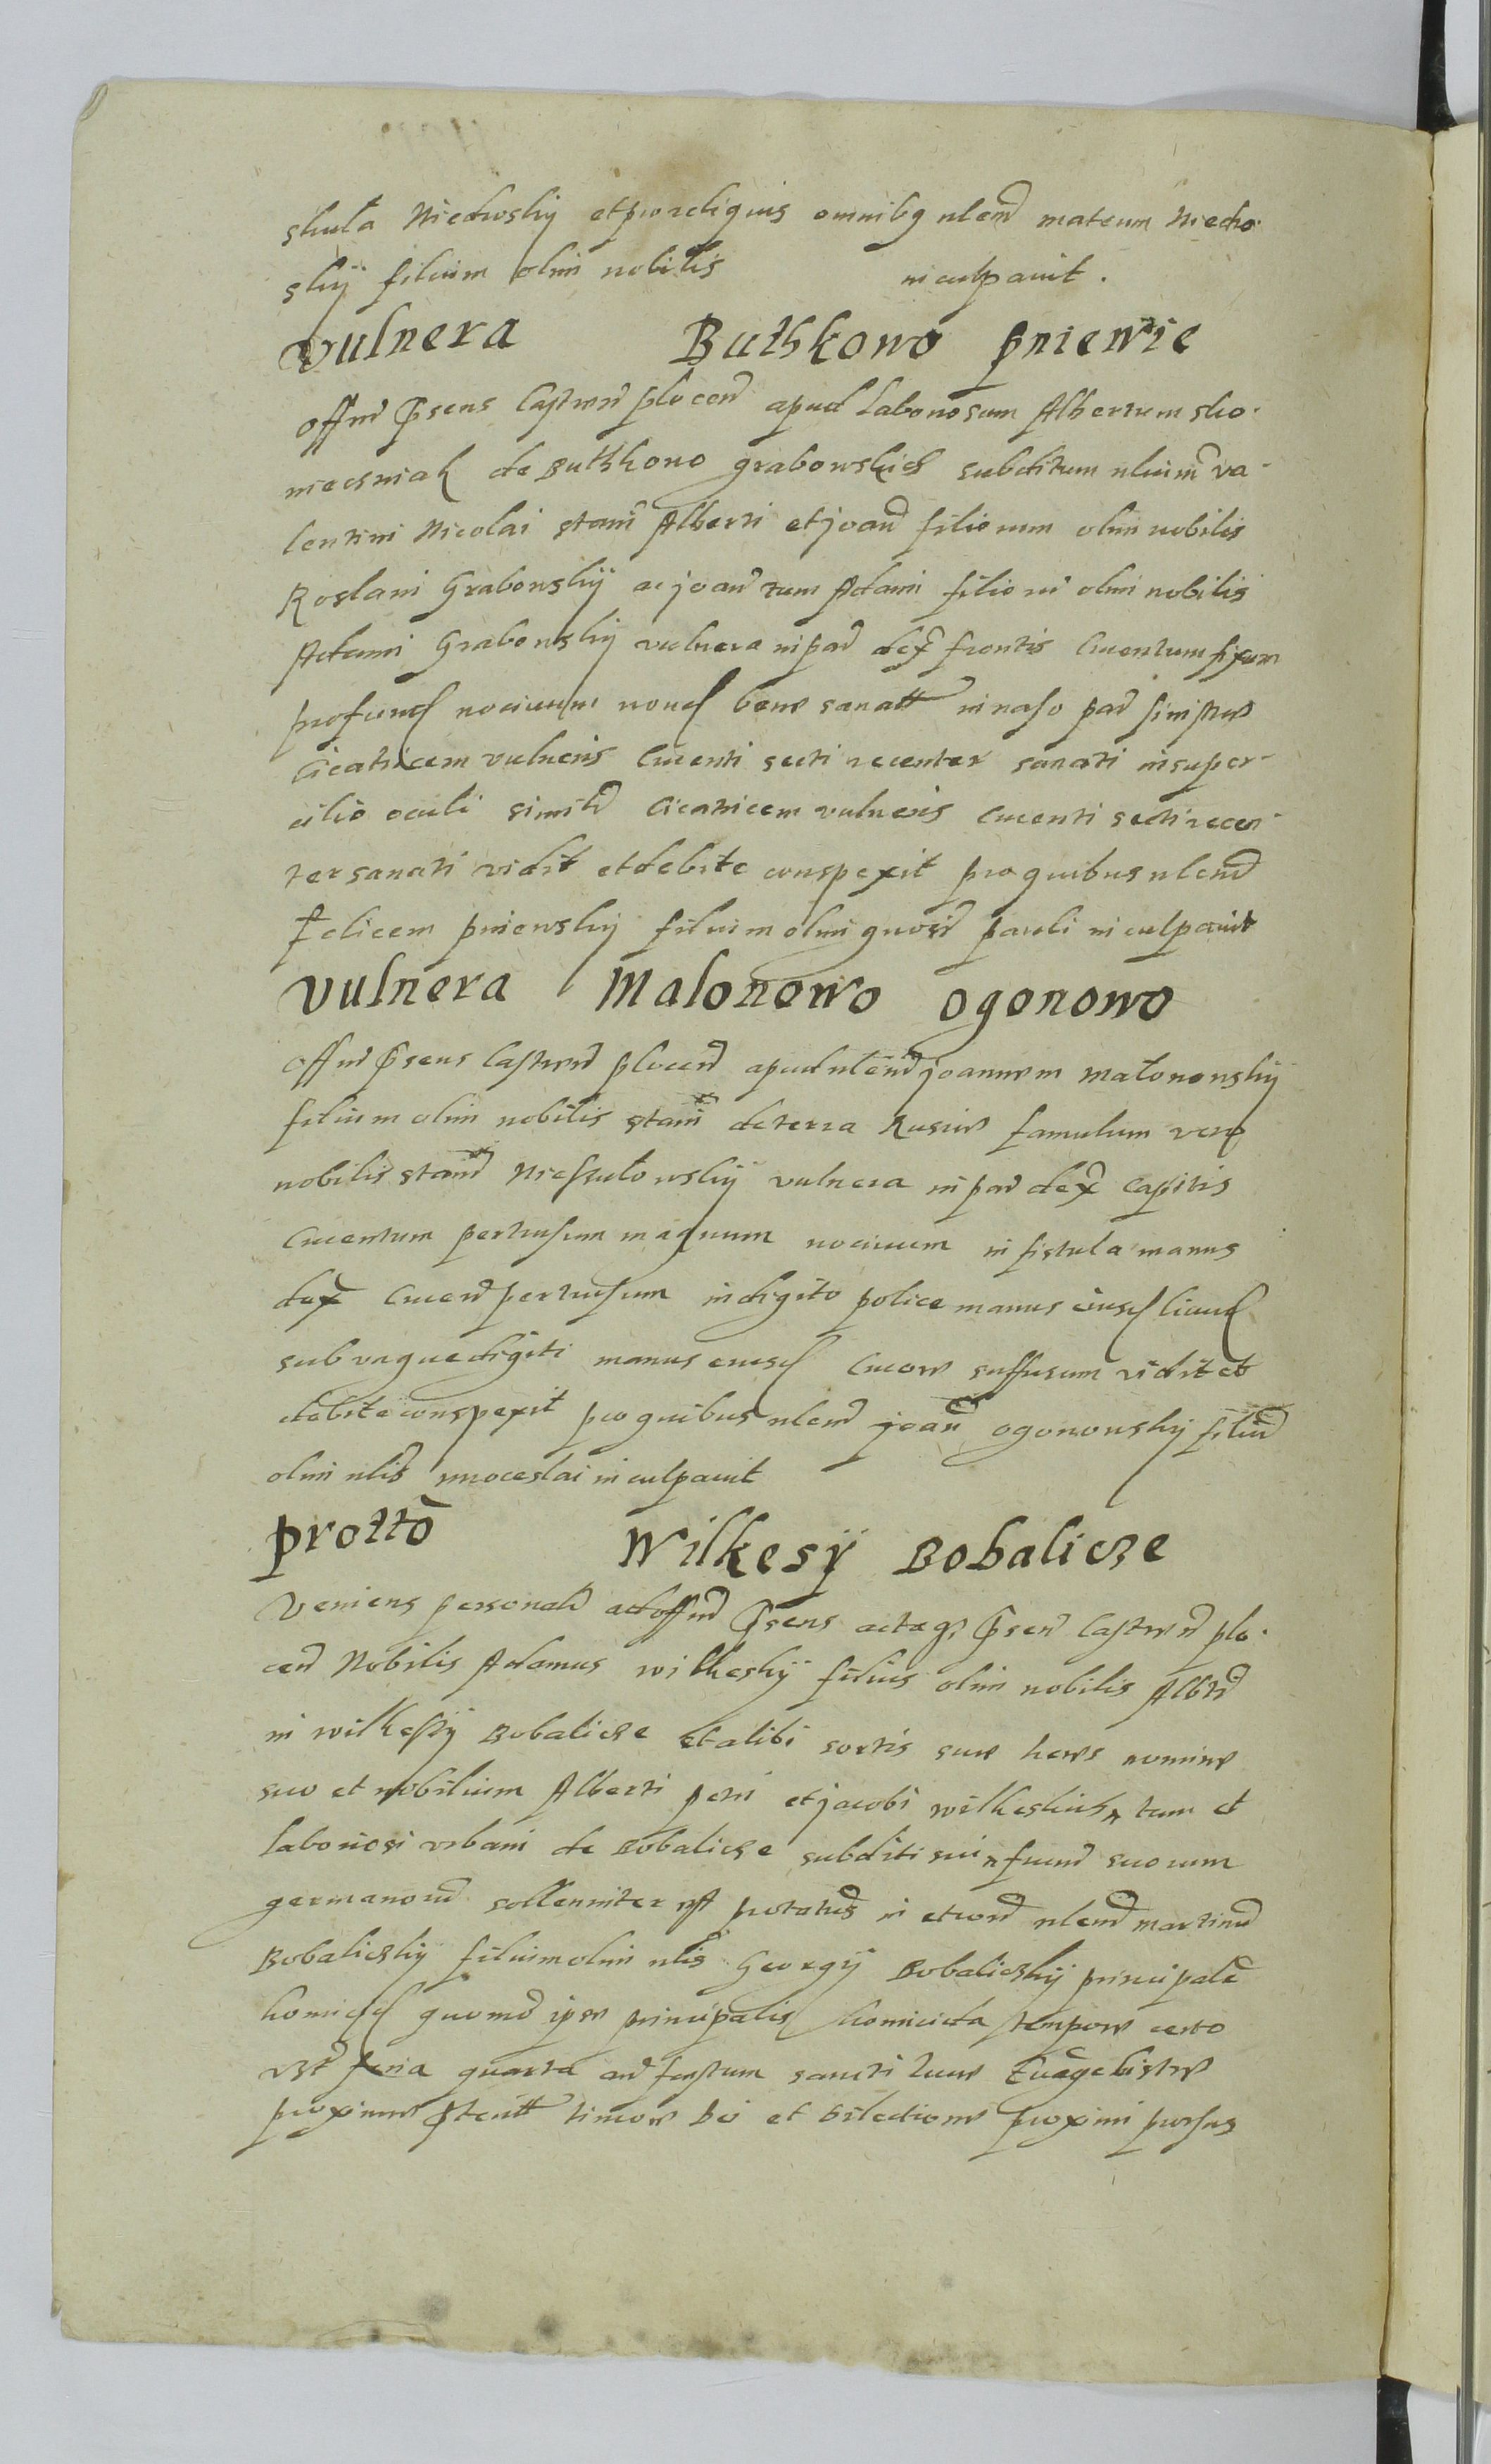 skuła Niedwskÿ et pro reliquis omnibq nlem̃ mateum Niedro
skÿ filium olim nobilis inculpauit.
Vulnera Buthkowo pniewie
Offm̃ p̃sens Castreñ ploceñ apud Laboriosum Albertum sko-
niecsniak de Buthkowo grabowskich subditum nlium̃ va-
lentini Nicolai stani Alberti et joañ filiorum olim nobilis
Roslani Grabowskÿ ac joañ tum Adami filiorũ olim nobilis
Adami Grabowskÿ vulnera in par̃ dex̃ frontis Cruentum fixum
profund nociuum nond bene sanatt in naso par̃ sinistre
Cicatricem vulneris Cruenti secti recenter sanati in super-
cilio oculi simil̃ Cicatricem vulneris Cruenti secti recen-
ter sanati vidit et debite conspexit pro quibus nlem̃
felicem pniewskÿ filium olim gnosi pauli inculpauit
Vulnera Malonowo ogonowo
Offm̃ p̃sens Castreñ ploceñ apud nlem̃ joannem małonowskÿ
filium olim nobilis stani de terra Rusie famulum vero
nobilis stani Miessułowskÿ vulnera in par̃ dex̃ Capitis
Cruentum pertusum magnum nociuum in fistula manus
dex̃ Crueñ pertusum in digito police manus eiusd liuid
sub vngue digiti manus eiusd Cruore suffusum vidit et
debite conspexit pro quibus nlem̃ joañ ogonowskÿ filiũ
olim nlis mroceslai inculpauit
protto Wilkesÿ Bobalicze
Veniens personal̃ ad offm̃ p̃sens actaq3 p̃señ Castreñ plo-
ceñ Nobilis Adamus wilkeskÿ filius olim nobilis Albrti
in wilkessÿ Bobalicze et alibi sortis sue heres nomine
suo et nobilium Alberti petri et jacobi wilkeskich tum et
laboriosi vrbani de Bobalicze subditi sui frum̃ suorum
germanorũ sollenniter est protatus in et coñ nlem̃ martinũ
Bobaliczkÿ filium olim nlis Georgÿ Bobaliczkÿ principale
homicid quomõ ipse principalis homicida tempore certo
vz̃t feria quarta añ festum sancti luce Euãgelistre
proxime p̃teritt timore Dei et Dilectione proximi prorsus